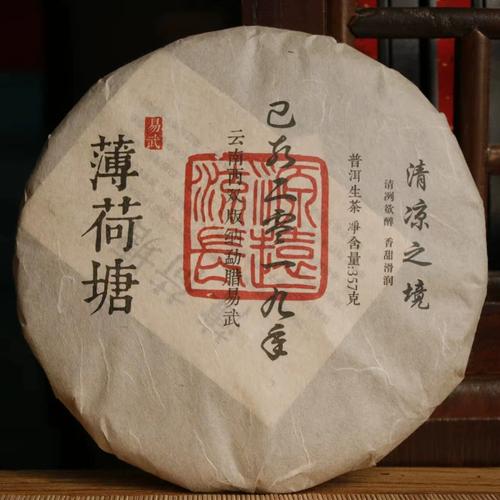 易武
薄荷塘
云南西双版纳勐腊易武
源远流长
己亥二零一九年
普洱生茶 净含量:357克
清洌欲醉 香甜滑润
清凉之境